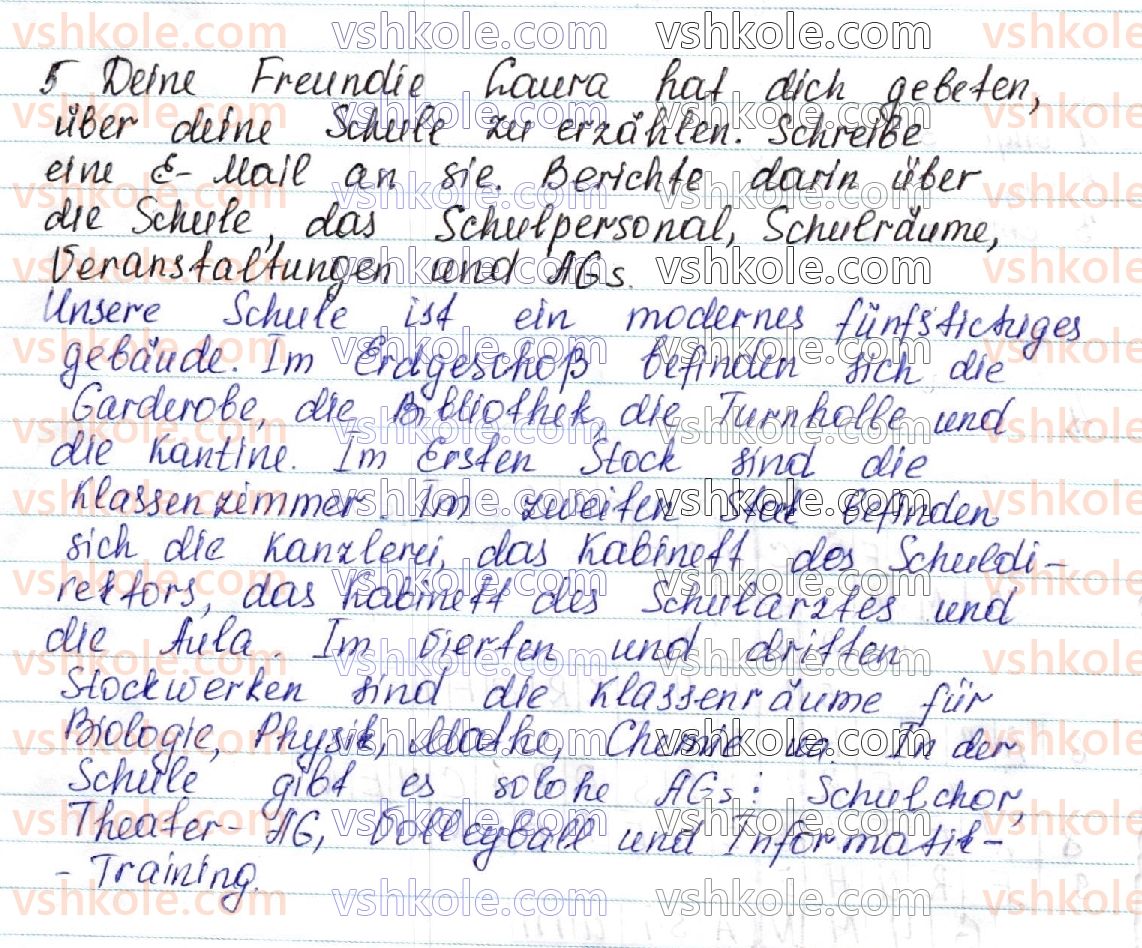 5 Deine Freundie Laura hat dich gebeten,
über deine Schule zu erzählen. Schreibe
eine E-Mail an sie. Berichte darin über
die Schule, das Schulpersonal, Schulräume,
Veranstaltungen und AGs.
Unsere Schule ist ein modernes
gebäude. Im Erdgeschoß befinden sich die
Garderobe, die Bibliothek, die Turnhalle und
die Kantine. Im Ersten Stock sind die
Klassenzimmer. Im zweiten befinden
sich die Kanzlerei, das Kabinett des Schuldi-
rektors, das Kabinett des Schularztes und
die Aula. Im vierten und dritten
Stockwerken sind die Klassenräume für
Biologie, Physik, Mathe, Chemie ua. In der
Schule gibt es solche AGs: Schulchor,
Theater-AG, Volleyball und Informatik-
- Training.
vshkole.com